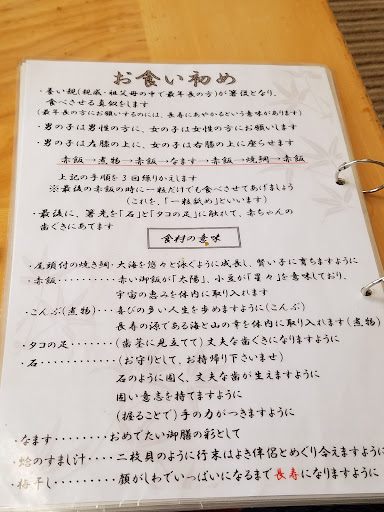 お食い初め
・養い親(親戚・祖父母の中で最年長の方)が箸役となり、
食べさせる真似をします
(最年長の方にお願いするのには、長寿にあやかるという意味があります)
・男の子は男性の方に、女の子は女性の方にお願いします
・男の子は左膝の上に、女の子は右膝の上に座らせます
赤飯→煮物→赤飯→なます→赤飯→焼鯛→赤飯
上記の手順を3回繰りかえします
※最後の赤飯の時に一粒だけでも食べさせてあげましょう
(これを、「一粒舐め」といいます)
・最後に、箸先を「石」と「タコの足」に触れて、赤ちゃんの
歯ぐきにあてます
食材の意味
・尾頭付の焼き鯛・大海を悠々と泳ぐように成長し、賢い子に育ちますように
・赤飯・・・・・・・・・・赤い御飯が「太陽」、小豆が「星々」を意味しており、
宇宙の恵みを体内に取り入れます
・こんぶ(煮物)・・・喜びの多い人生を歩めますように(こんぶ)
長寿の源である海と山の幸を体内に取り入れます(煮物)
・タコの足・・・・・・(歯茎に見立てて)丈夫な歯ぐきになりますように
・石・・・・・・・・・・(お守りとして、お持帰り下さいませ)
石のように固く、丈夫な歯が生えますように
固い意志を持てますように
(握ることで)手の力がつきますように
・なます・・・・・・・・・おめでたい御膳の彩として
・蛤のすまし汁・・・・二枚貝のように行末はよき伴侶とめぐり合えますように
・梅干し・・・・・・・・・顔がしわでいっぱいになるまで長寿になりますように